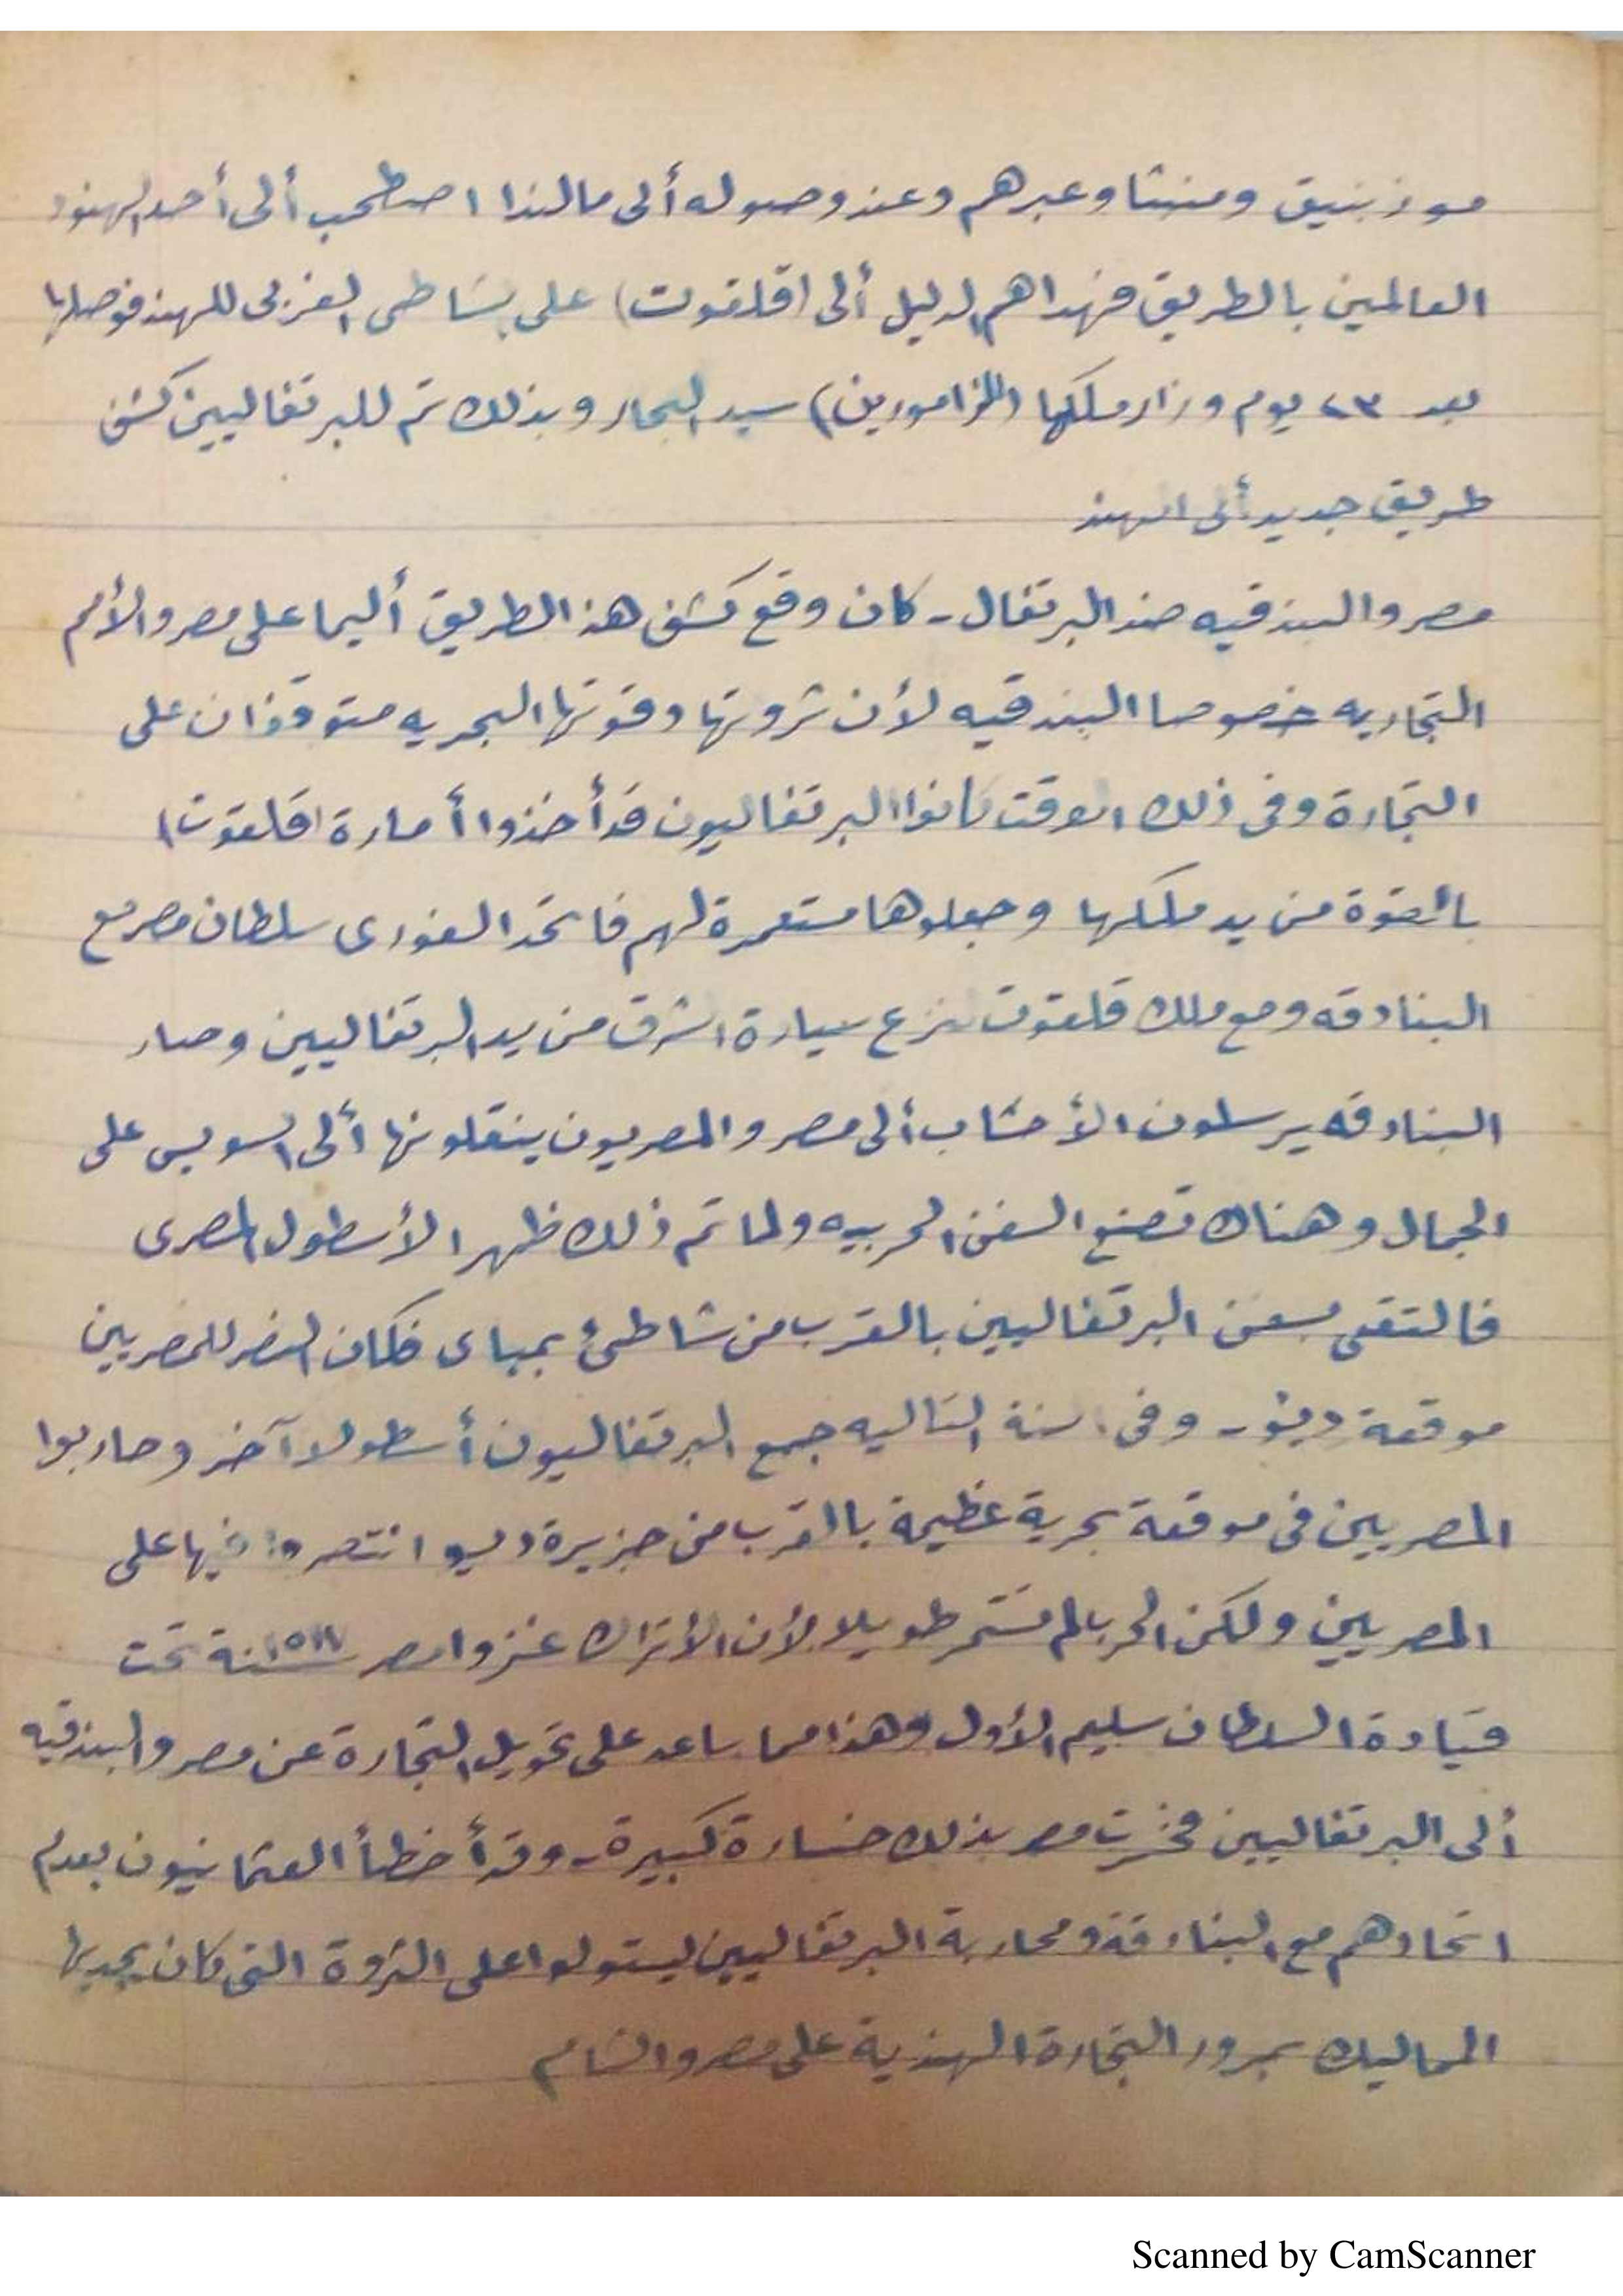 موزنبيق ومنشا وعبرهم وعند وصوله ألى مالندا اصطحب ألى أحد الهنود
العالمين بالطريق فهداهم الدليل ألى (قلقوت) على الشاطى الغربى للهند فوصلها
بعد ٢٣ يوم وزار ملكها (الزامورين) سيد البحار وبذلك تم للبرتغاليين كشف
طريق جديد ألى الهند
مصر والبندقيه ضد البرتغال - كان وقع كشف هذ الطريق أليما على مصر والأمم
التجاريه خصوصا البندقيه لأن ثروتها وقوتها البحريه متوقفان على
التجارة وفى ذلك الوقت كانوا البرتغاليون قد أخذوا أمارة (قلقوت)
بالقوة من يد ملكها وجعلوها مستعمرة لهم فاتحد الغورى سلطان مصر مع
البنادقه ومع ملك قلقوت لنزع سيادة الشرق من يد البرتغاليين وصار
البنادقه يرسلون الأخشاب ألى مصر والمصريون ينقلونها ألى السويس على
الجمال وهناك تصنع السفن الحربيه ولما تم ذلك ظهر الأسطول المصرى
فالتقى بسفن البرتغاليين بالقرب من شاطئ بمباى فكان النصر للمصريين
موقعة ديو - وفى السنة التاليه جمع البرتغاليون أسطولا آخر وحاربوا
المصريين فى موقعة بحرية عظيمة بالقرب من جزيرة ديو انتصروا فيها على
المصريين ولكن الحرب لم تستمر طويلا لأن الأتراك غزوا مصر سنة ١٥١٧ تحت
قيادة السلطان سليم الأول وهذا مما ساعد على تحويل التجارة عن مصر والبندقيه
ألى البرتغاليين فخسرت مصر بذلك خسارة كبيرة - وقد أخطأ العثمانيون بعدم
اتحادهم مع البنادقة ومحاربة البرتغاليين ليستولوا على الثروة التى كان يجديها
المماليك بمرور التجارة الهندية على مصر والشام
Scanned by CamScanner